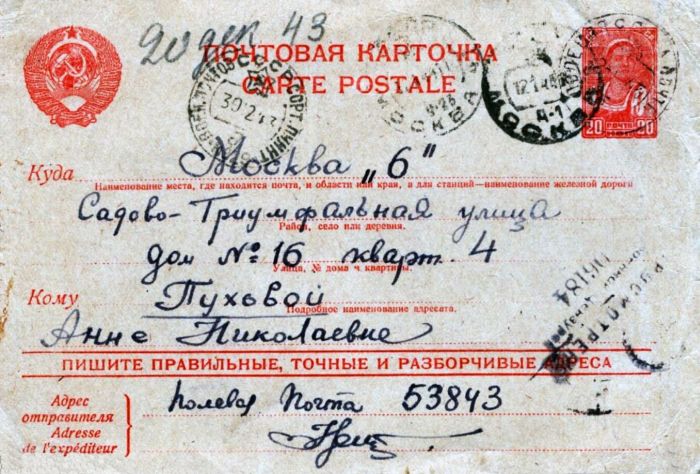 20 дек 43
ПОЧТОВАЯ КАРТОЧКА
CARTE POSTALE
20 ПОЧТА 20
Куда Москва „6"
Наименование места, где находится почта, и области или края, а для станций—наименование железной дороги
Садово-Триумфальная улица
Район, село или деревня.
дом № 16 кварт. 4
Улица, № дома и квартиры.
Кому Пуховой
Подробное наименование адресата.
Анне Николаевне
ПРОСМОТРЕНО
06184
ПИШИТЕ ПРАВИЛЬНЫЕ, ТОЧНЫЕ И РАЗБОРЧИВЫЕ АДРЕСА
Адрес отправителя
Adresse de l'expéditeur
Полевая Почта 53843